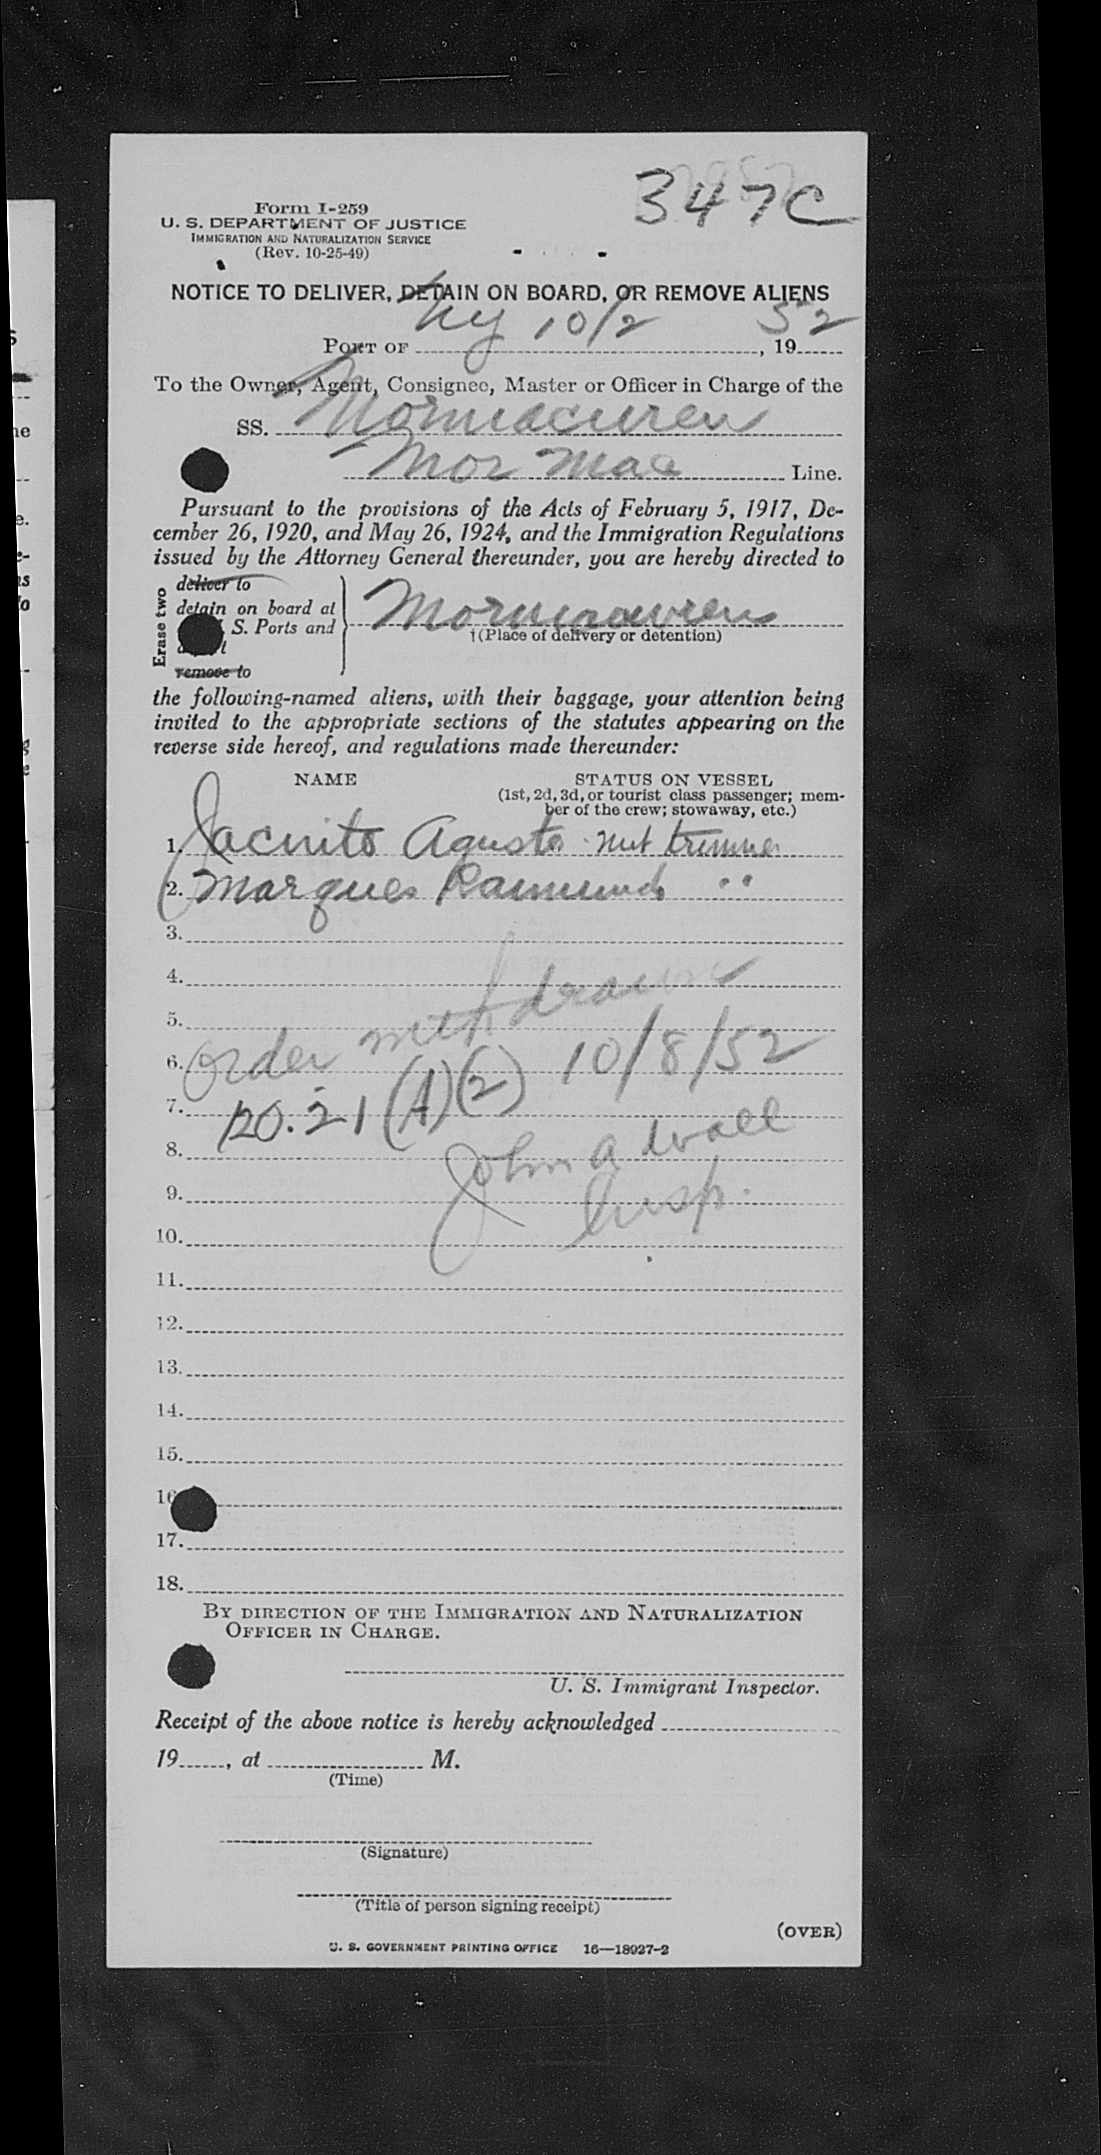 347C
Form I-259
U. S. DEPARTMENT OF JUSTICE
IMMIGRATION AND NATURALIZATION SERVICE
(Rev. 10-25-49)
NOTICE TO DELIVER, DETAIN ON BOARD, OR REMOVE ALIENS
PORT OF NY 10/2, 1952
To the Owner, Agent, Consignee, Master or Officer in Charge of the
SS. Mormacwren
Mor Mac Line.
Pursuant to the provisions of the Acts of February 5, 1917, De-
cember 26, 1920, and May 26, 1924, and the Immigration Regulations
issued by the Attorney General thereunder, you are hereby directed to
Erase two
deliver to
detain on board at
S. Ports and
remove to
Mormacwren
†(Place of delivery or detention)
the following-named aliens, with their baggage, your attention being
invited to the appropriate sections of the statutes appearing on the
reverse side hereof, and regulations made thereunder:
NAME STATUS ON VESSEL
(1st, 2d, 3d, or tourist class passenger; mem-
ber of the crew; stowaway, etc.)
1. Jacinto Agusto trimmer
2. Marques Raimundo " "
3.
4.
5.
6. Order withdrawn
7. 120.21 (A)(2) 10/8/52
8. John A Wall
9. Insp.
10.
11.
12.
13.
14.
15.
16
17.
18.
BY DIRECTION OF THE IMMIGRATION AND NATURALIZATION
OFFICER IN CHARGE.
U. S. Immigrant Inspector.
Receipt of the above notice is hereby acknowledged
19......, at M.
(Time)
(Signature)
(Title of person signing receipt)
(OVER)
U. S. GOVERNMENT PRINTING OFFICE 16—18927-2